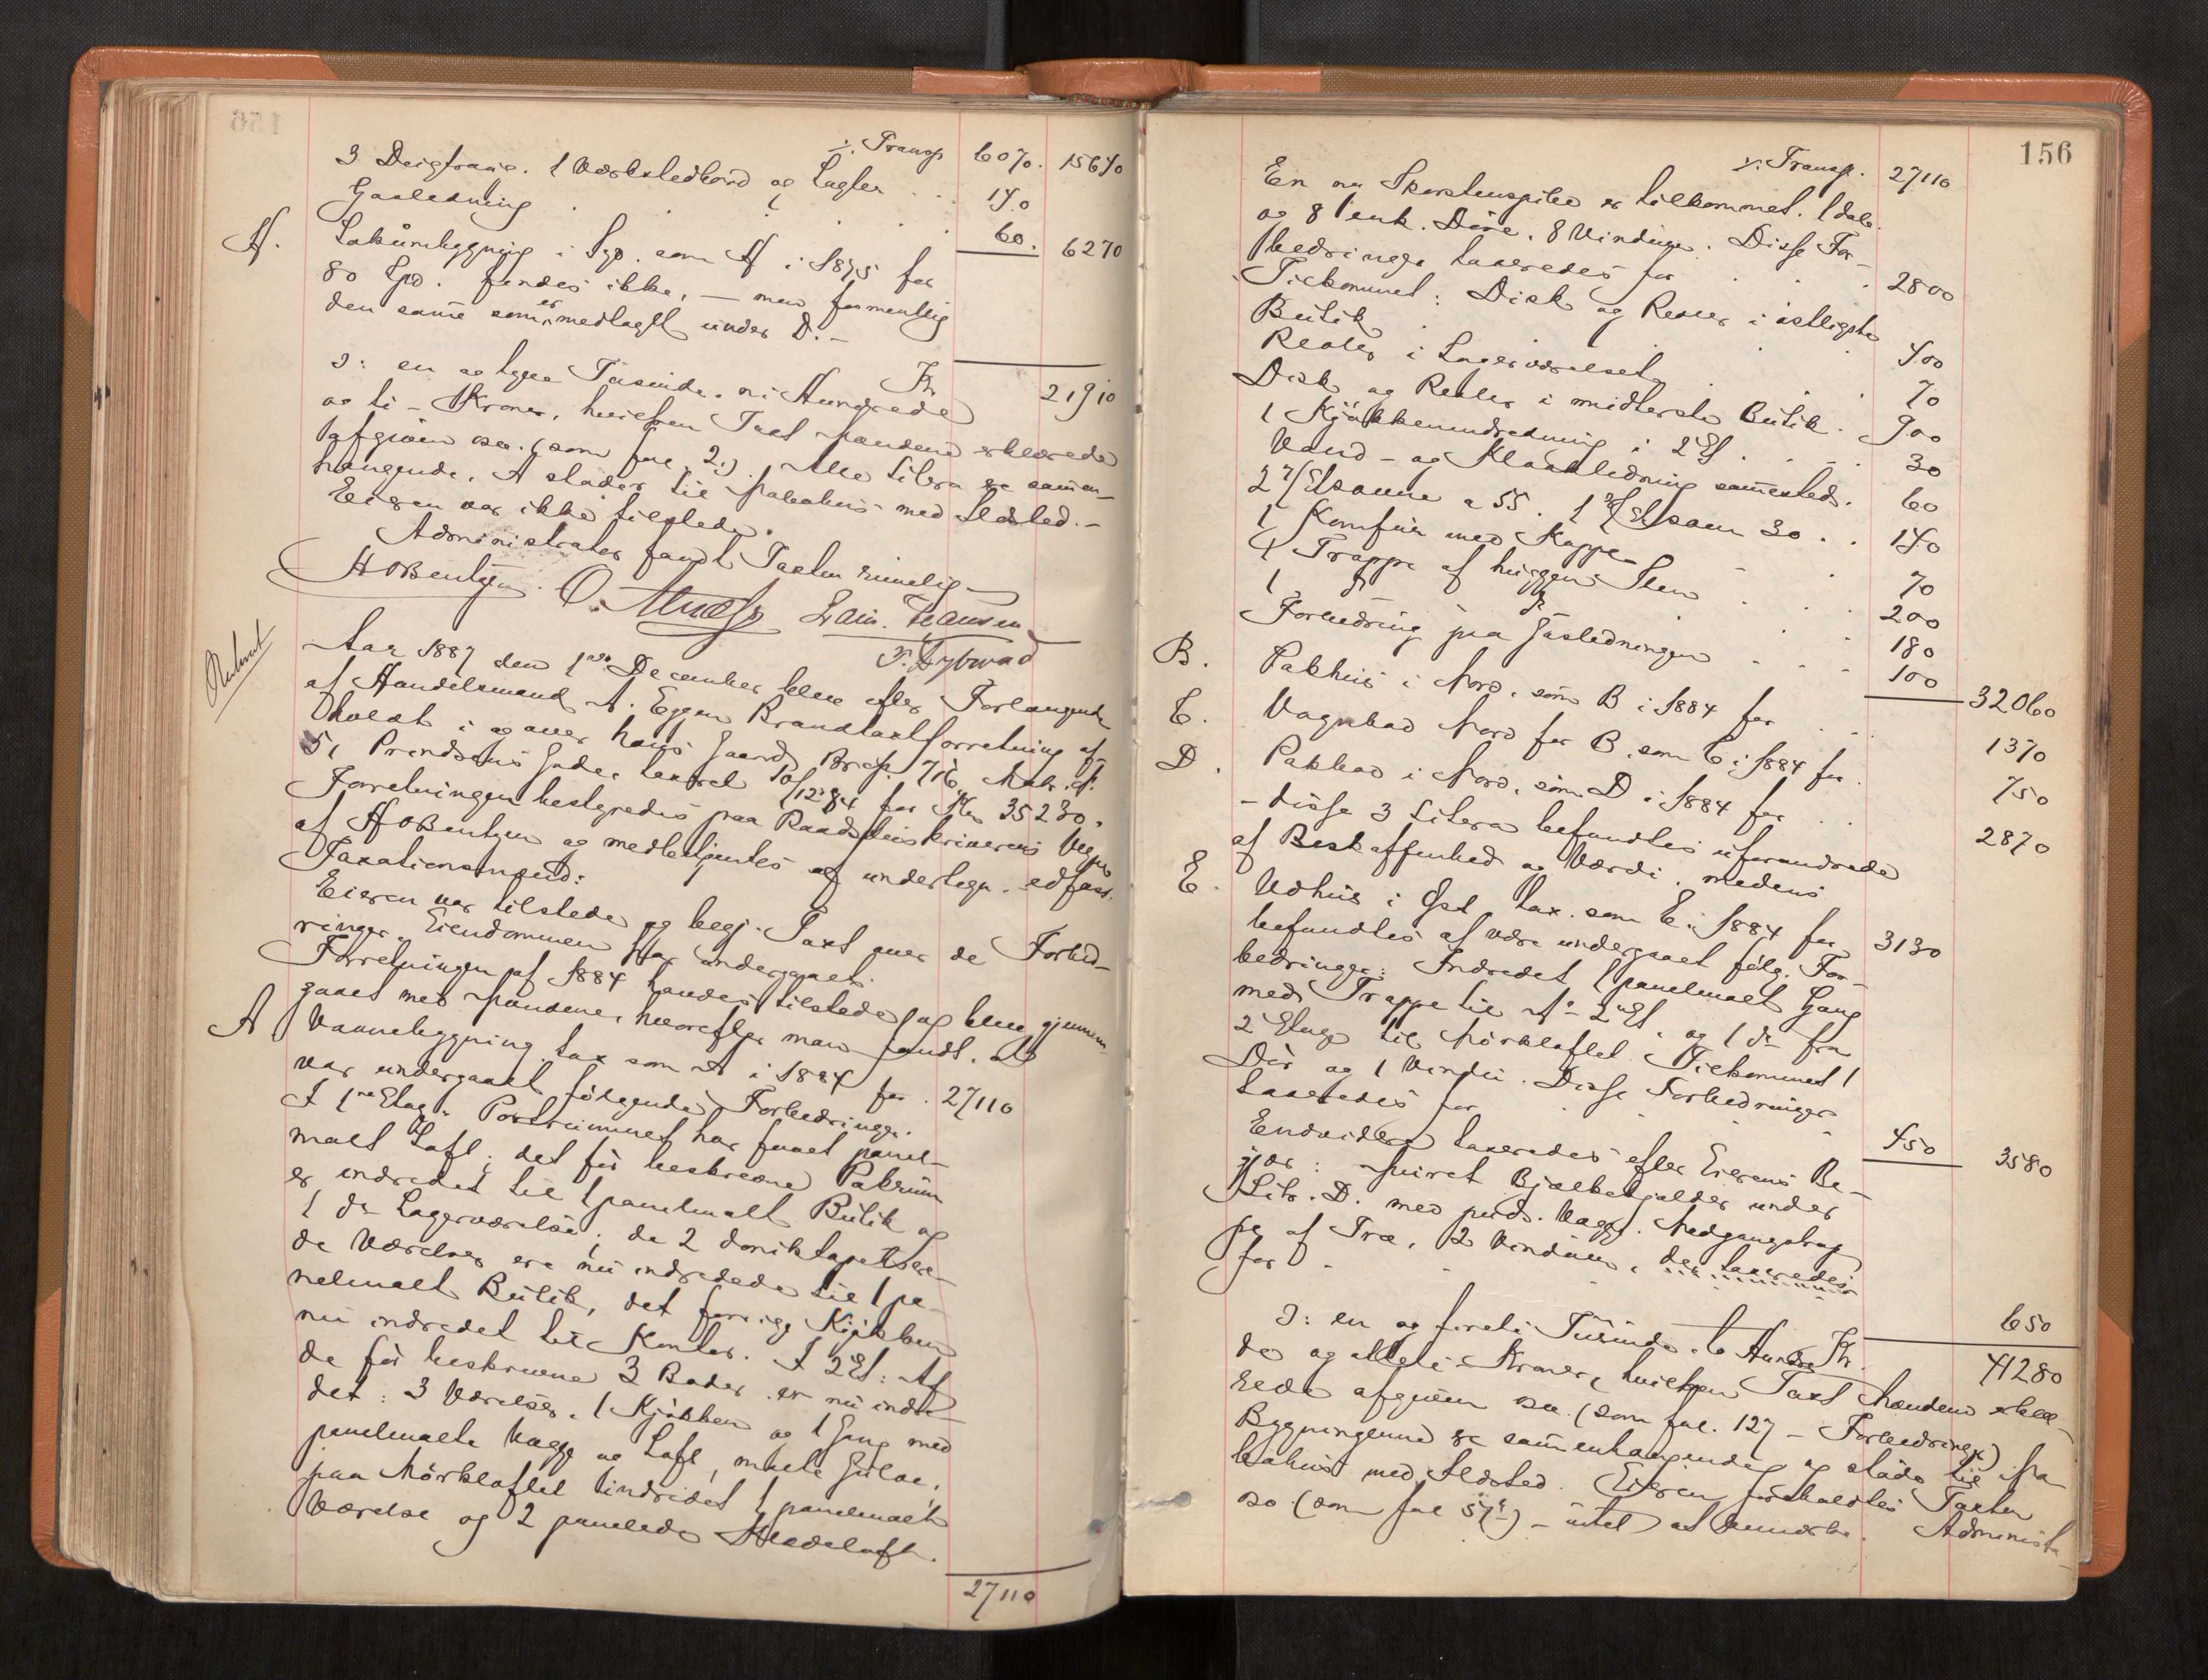 ÷ Transp 6070. 15640
3 Deigtraug. 1 Værkstedbord og Lagler . . 140
Gasledning . . . . . 60. 6270
H. Lokumbygning i Syd. som H i 1875 for
80 Spd. findes ikke, — men formentlig
den samme som er medtaget under D. —
Kr 21910
ɔ: en og tyve Tusinde, ni Hundrede
og ti – Kroner, hvilken Taxt Mændene erklærede
afgiven osv. (som fol. 2.). Alle Litera er sammen-
hængende. A støder til Nabohus med Ildsted. –
Eieren var ikke tilstede.
Administrator fandt Taxten rimelig –
H O Bentzen. O. Hansen
Aar 1887 den 1ste December blev efter Forlangende
af Handelsmand A. Eggen Brandtaxtforretning af-
holdt i og over hans Gaard, Brcp. 716, Matr. N.
51 Prindsens Gade, taxeret 10/12 84 for Kr 35230.
Forretningen bestyredes paa Raadstueskriverens Vegne
af H O Bentzen og medbetjentes af undertegn. edfæst.
Taxationsmænd:
Eieren var tilstede og begj. Taxt over de Forbed-
ringer, Eiendommen har undergaaet.
Forretningen af 1884 havdes tilstede og blev gjennem-
gaaet med Mændene, hvorefter man fandt, at
A Vaanebygning tax som A i 1884 for . 27110
var undergaaet følgende Forbedringer.
I 1ste Etage: Portrummet har faaet panel-
malt Loft; det før beskrevne Pakrum
er indredet til 1 panelmalt Butik og
1 do Lagerværelse; de 2 doniktapetsere-
de Værelser ere nu indredede til 1 pa-
nelmalt Butik, det forrige Kjøkken
nu indredet til Kontor. I 2 Et: Af
de før beskrevne 3 Boder er nu indre-
det: 3 Værelser, 1 Kjøkken og 1 Gang med
panelmalte Vægge og Loft, malte Gulve,
paa Mørkloftet indredet 1 panelmalt
Værelse og 2 panelede Klædeloft.
27110
156
÷ Transp. 27110
En ny Skorstenspibe er tilkommet. 1 dob.
og 8 enk. Døre, 8 Vinduer. Disse For-
bedringer taxeredes for . . . 2800
Tilkommet: Disk og Reoler i østligste
Butik . . . . 400
Reoler i Lagerværelset . . . 70
Disk og Reoler i midterste Butik . 900
1 Kjøkkenindredning i 2 Et . . . 30
Vand- og Kloakledning sammesteds. 60
2 2/Et.ovne a 55. 1 Et.ovn 30 . . 140
1 Komfur med Kappe . . . 70
1 Trappe af huggen Sten . . . 200
1 do do . . . 180
Forbedring paa Gasledningen . . . 100 32060
B. Pakhus i Nord, som B i 1884 for . . 1370
C. Vognbod Nord for B, som C i 1884 for . 750
D. Pakbod i Nord, som D i 1884 for . . 2870
– disse 3 Litera befandtes uforandrede
af Beskaffenhed og Værdi, medens
E. Udhus i Øst tax. som E i 1884 for 3130
befandtes at være undergaaet følg. For-
bedringer: Indredet 1 panelmalt Gang
med Trappe til A's 2 Et. og 1 do fra
2 Etage til Mørkloftet. Tilkommet 1
Dør og 1 Vindu. Disse Forbedringer
taxeredes for . . . 450 3580
Endvidere taxeredes efter Eierens Be-
gjær: muret Bjælkekjælder under
Litr. D. med puds. Vægge. Nedgangstrap-
pe af Træ, 2 Vinduer, der taxeredes
for . . . 650
Kr. 41280
ɔ: en og fireti Tusinde, to Hundre-
de og otteti Kroner, hvilken Taxt Mændene erklæ-
rede afgiven osv. (som fol. 127 – Forbedringer)
Bygningerne er sammenhængende og støde til Na-
bohus med Ildsted. Eieren foreholdtes Taxten
osv (som fol 57) – intet at bemærke. Administra-